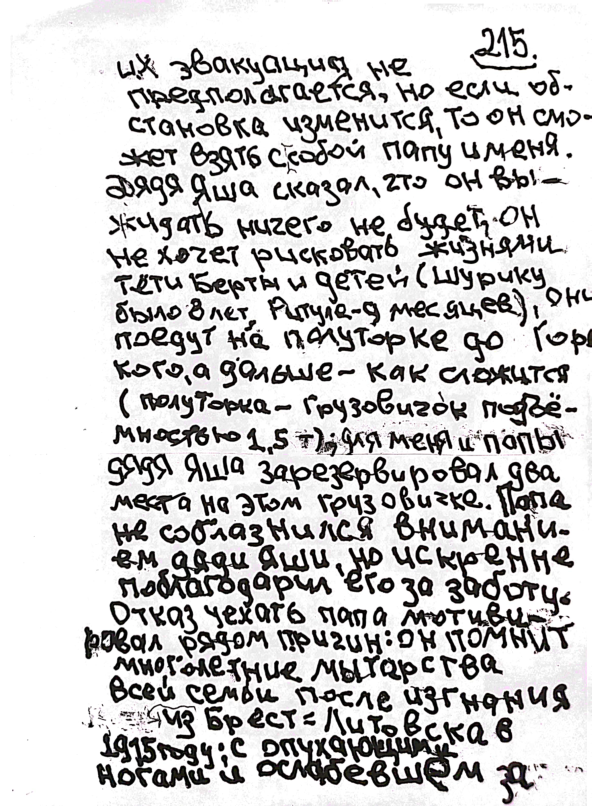 215.
их эвакуация не
предполагается, но если об-
становка изменится, то он смо-
жет взять с собой папу и меня.
Дядя Яша сказал, что он вы-
жидать ничего не будет, он
не хочет рисковать жизнями
тёти Берты и детей (Шурику
было 8 лет, Ритуле-9 месяцев), они
поедут на полуторке до Горь
кого, а дальше - как сложится
(полуторка - грузовичок подъё-
мностью 1,5 т); для меня и папы
дядя Яша зарезервировал два
места на этом грузовичке. Папа
не соблазнился внимани-
ем дяди Яши, но искренне
поблагодарил его за заботу.
Отказ уехать папа мотиви-
ровал рядом причин: он помнит
многолетние мытарства
всей семьи после изгнания
из Брест=Литовска в
1915 году; с опухающими
ногами и ослабевшем за